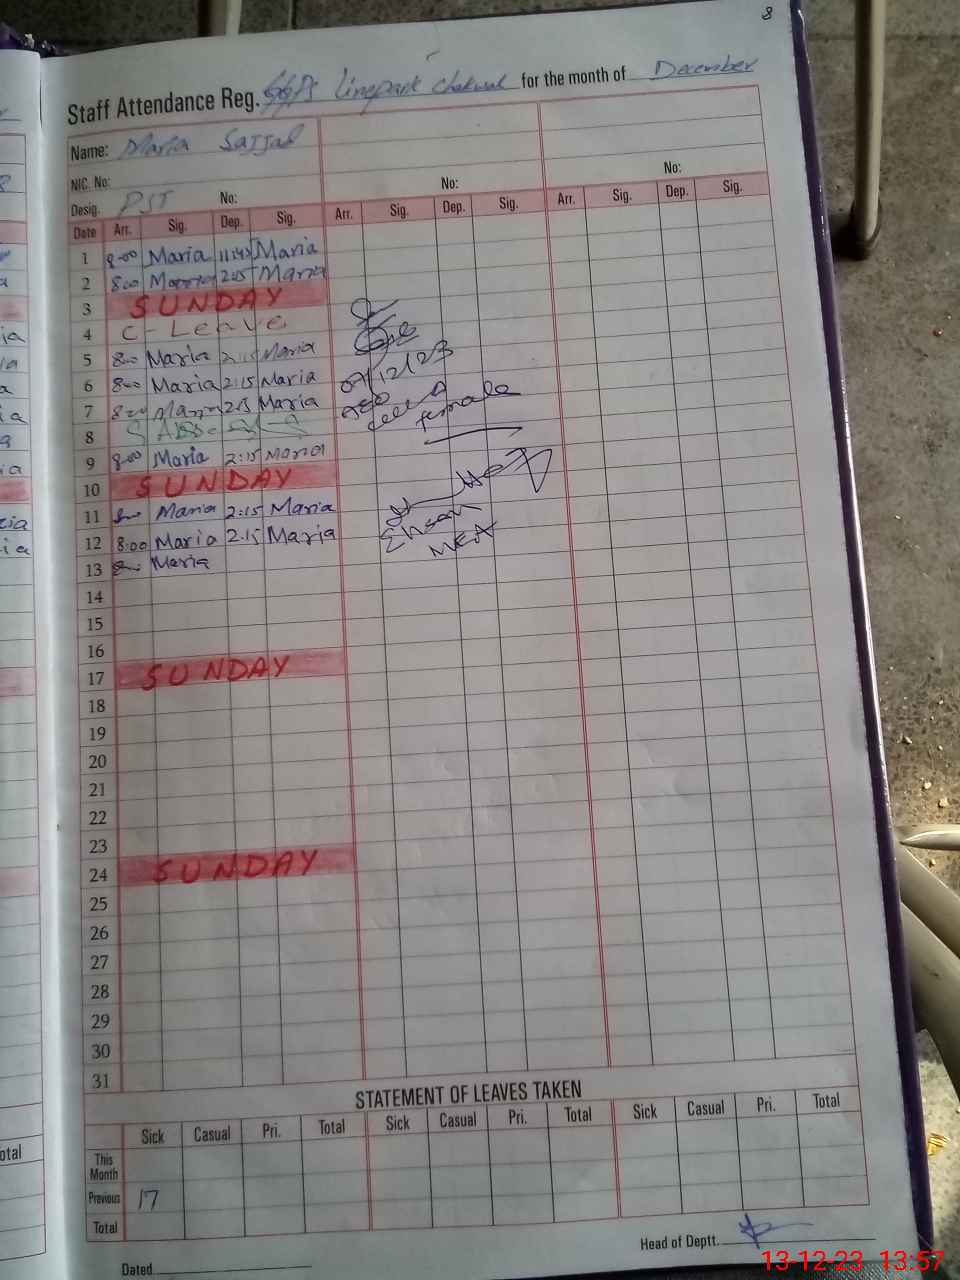 8
Staff Attendance Reg. GGPS Linepark Chakwal for the month of December
Name: Maria Sajjad
NIC. No:
Desig. PST No: No: No:
Date Arr. Sig. Dep. Sig. Arr. Sig. Dep. Sig. Arr. Sig. Dep. Sig.
1 8:00 Maria 11:45 Maria
2 8:00 Maria 2:15 Maria
3 SUNDAY
4 C-Leave
5 8:00 Maria 2:15 Maria
6 8:00 Maria 2:15 Maria
7 8:00 Maria 2:15 Maria
8
9 8:00 Maria 2:15 Maria
10 SUNDAY
11 8:00 Maria 2:15 Maria
12 8:00 Maria 2:15 Maria
13 8:00 Maria
14
15
16
17 SUNDAY
18
19
20
21
22
23
24 SUNDAY
25
26
27
28
29
30
31
07/12/23
female
Ehsan
MEA
STATEMENT OF LEAVES TAKEN
Sick Casual Pri. Total Sick Casual Pri. Total Sick Casual Pri. Total
This Month
Previous 17
Total
Dated
Head of Deptt.
13-12-23 13:57